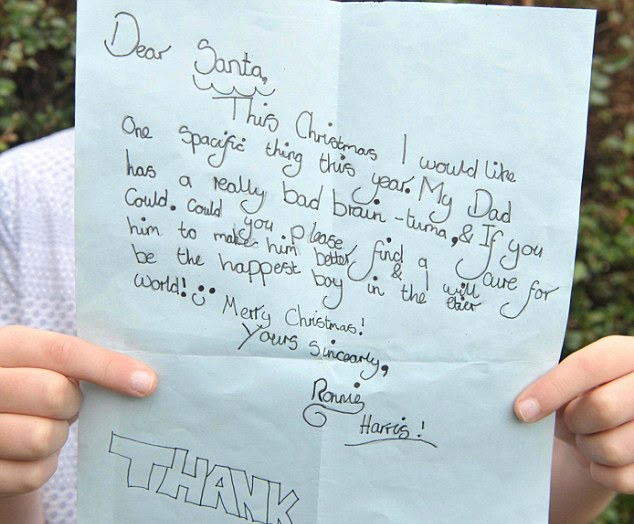 Dear Santa,
This Christmas I would like
One spacific thing this year. My Dad
has a really bad brain-tuma, & If you
Could. Could you please find a cure for
him to make him better, & I will
be the happest boy in the entier
world!
Merry Christmas!
Yours Sincearly,
Ronnie
Harris!
THANK